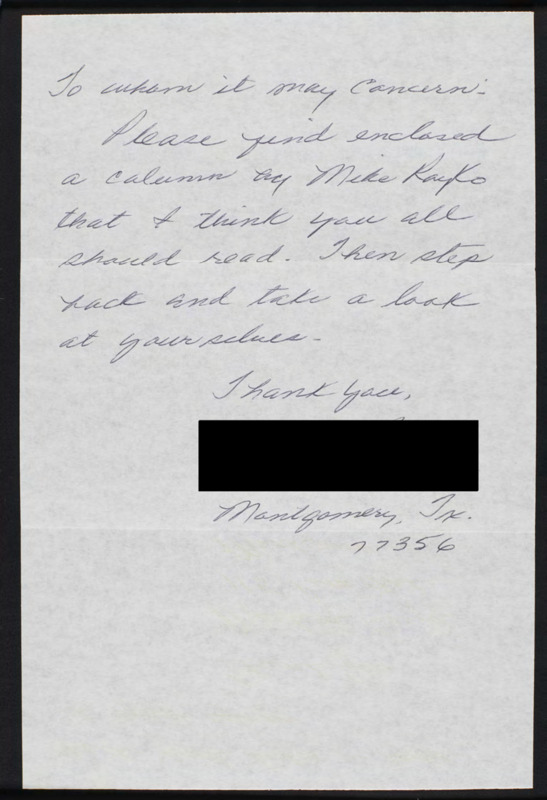 To whom it may Concern:
Please find enclosed
a column by Mike Royko
that I think you all
should read. Then step
back and take a look
at yourselves.
Thank you,
Montgomery, Tx.
77356